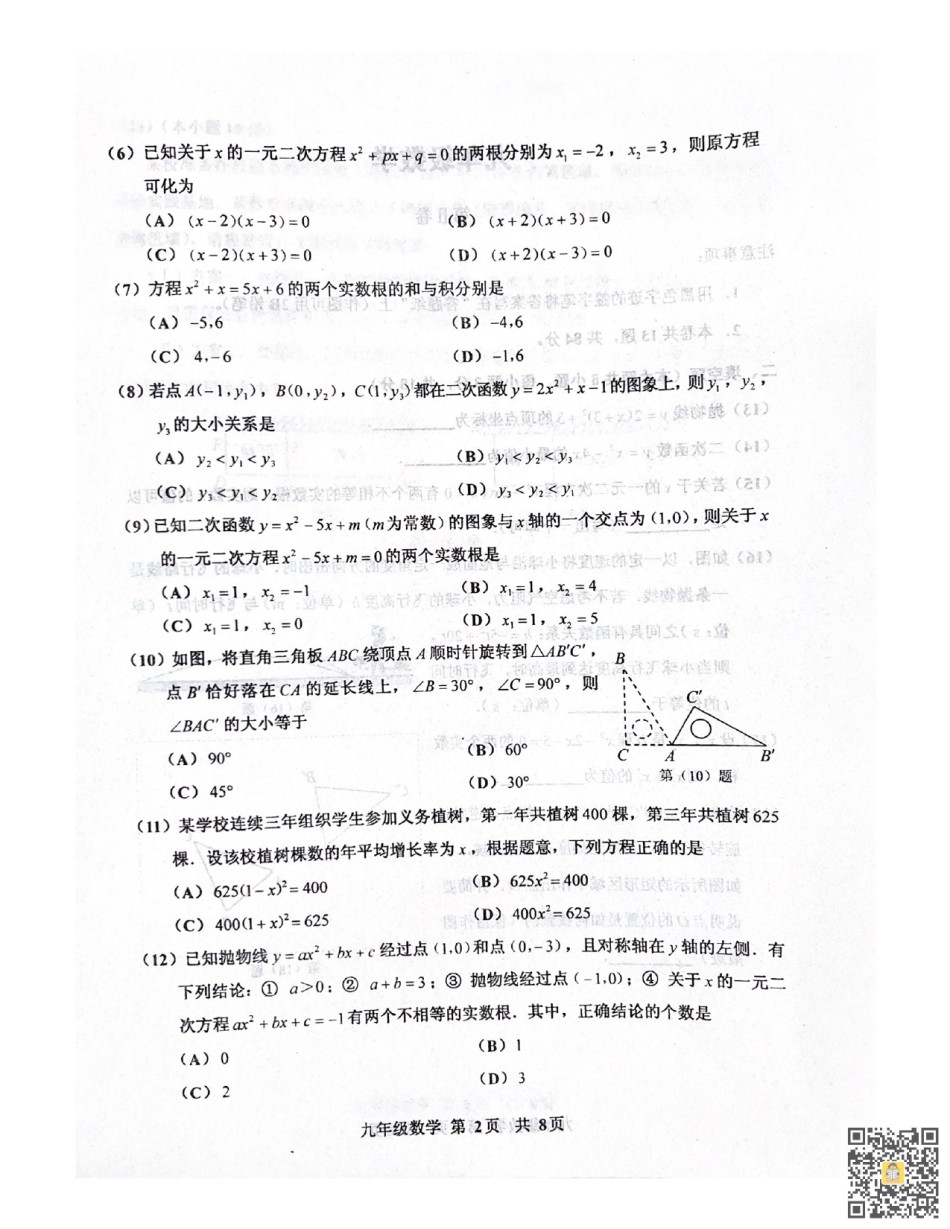 (6) 已知关于x的一元二次方程x²+px+q=0的两根分别为x₁=-2，x₂=3，则原方程
可化为
(A) (x-2)(x-3)=0 (B) (x+2)(x+3)=0
(C) (x-2)(x+3)=0 (D) (x+2)(x-3)=0
(7) 方程x²+x=5x+6的两个实数根的和与积分别是
(A) -5,6 (B) -4,6
(C) 4,-6 (D) -1,6
(8) 若点A(-1,y₁)，B(0,y₂)，C(1,y₃)都在二次函数y=2x²+x-1的图象上，则y₁，y₂，
y₃的大小关系是
(A) y₂<y₁<y₃ (B) y₁<y₂<y₃
(C) y₃<y₁<y₂ (D) y₃<y₂<y₁
(9) 已知二次函数y=x²-5x+m(m为常数)的图象与x轴的一个交点为(1,0)，则关于x
的一元二次方程x²-5x+m=0的两个实数根是
(A) x₁=1，x₂=-1 (B) x₁=1，x₂=4
(C) x₁=1，x₂=0 (D) x₁=1，x₂=5
(10) 如图，将直角三角板ABC绕顶点A顺时针旋转到△AB′C′，
点B′恰好落在CA的延长线上，∠B=30°，∠C=90°，则
∠BAC′的大小等于
(A) 90° (B) 60°
(C) 45° (D) 30°
B
C′
C A B′
第(10)题
(11) 某学校连续三年组织学生参加义务植树，第一年共植树400棵，第三年共植树625
棵．设该校植树棵数的年平均增长率为x，根据题意，下列方程正确的是
(A) 625(1-x)²=400 (B) 625x²=400
(C) 400(1+x)²=625 (D) 400x²=625
(12) 已知抛物线y=ax²+bx+c经过点(1,0)和点(0,-3)，且对称轴在y轴的左侧．有
下列结论：① a>0；② a+b=3；③ 抛物线经过点(-1,0)；④ 关于x的一元二
次方程ax²+bx+c=-1有两个不相等的实数根．其中，正确结论的个数是
(A) 0 (B) 1
(C) 2 (D) 3
九年级数学 第2页 共8页